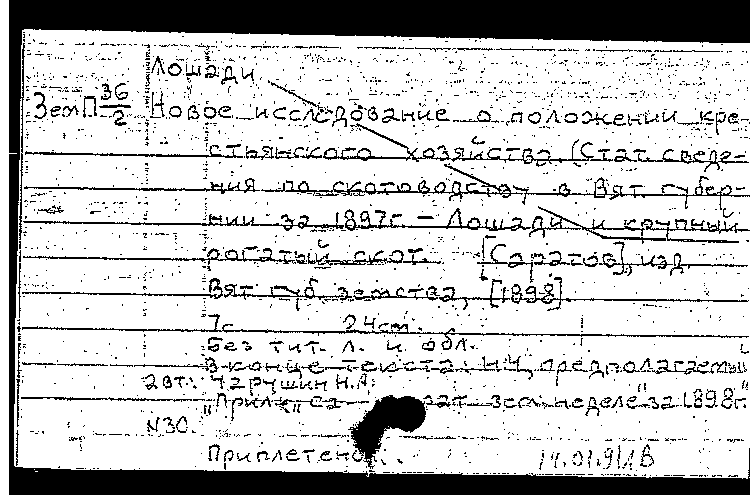 Лошади
ЗемП 36/2 Новое исследование о положении кре-
стьянского хозяйства. (Стат. сведе-
ния по скотоводству в Вят. губер-
нии за 1897г. – Лошади и крупный
рогатый скот. [Саратов], изд.
Вят. губ. земства, [1898].
7с 24см.
Без тит. л. и обл.
В конце текста: Н.Ч, предполагаемый
авт.: Чарушин Н.А.
"Прил. к Са рат. зем. неделе" за 1898г.
N30.
Приплетено